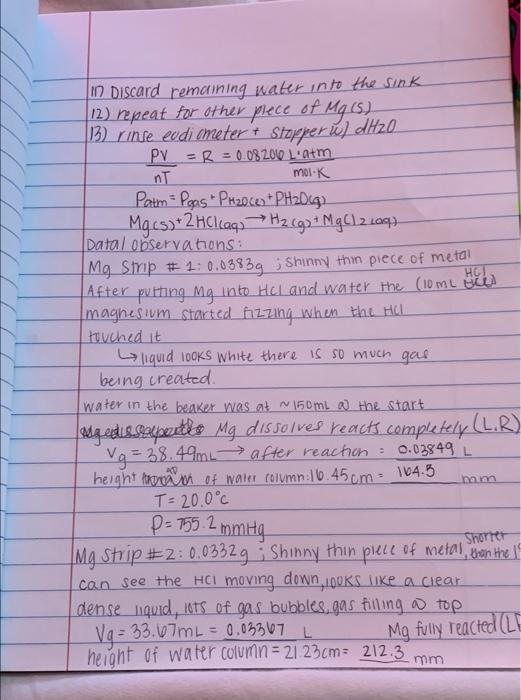 11) Discard remaining water into the sink
12) repeat for other piece of Mg(s)
13) rinse eudiometer + stopper w/ dH2O
PV = R = 0.08206 L·atm
nT mol·K
Patm = Pgas + PH2O(l) + PH2O(g)
Mg(s) + 2HCl(aq) → H2(g) + MgCl2(aq)
Data/observations:
Mg Strip #1: 0.0383g ; Shinny thin piece of metal
After putting Mg into HCl and water the (10mL HCl)
magnesium started fizzing when the HCl
touched it
↳ liquid looks white there is so much gas
being created.
water in the beaker was at ~150ml @ the start
Mg dissolves reacts completely (L.R)
Vg = 38.49mL → after reaction = 0.03849 L
height of water column: 16.45cm = 164.5 mm
T = 20.0°C
P = 755.2 mmHg
Mg Strip #2: 0.0332g ; Shinny thin piece of metal, Shorter than the 1
can see the HCl moving down, looks like a clear
dense liquid, lots of gas bubbles, gas filling @ top
Vg = 33.67mL = 0.03367 L Mg fully reacted (L
height of water column = 21.23cm = 212.3 mm